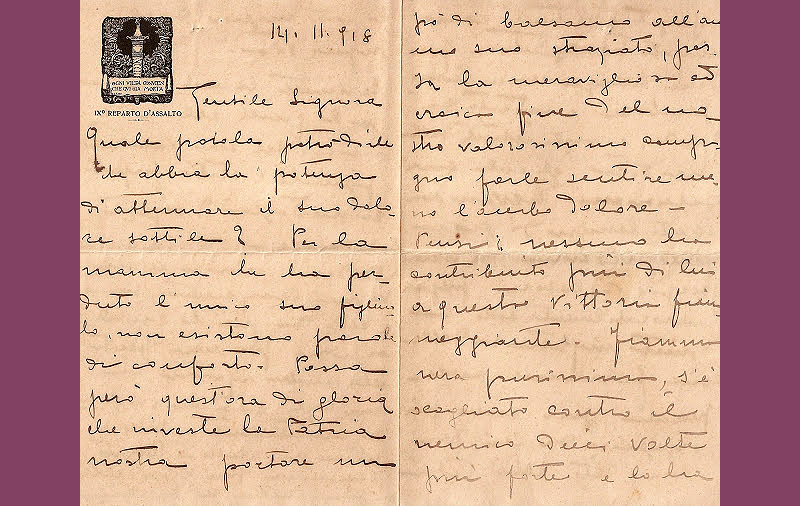 14. 11. 918
OGNI VILTÀ CONVIEN
CHE QUI SIA MORTA
IXº REPARTO D'ASSALTO
Gentile Signora
Quale parola potrò dirle
che abbia la potenza
di attenuare il suo dolo-
re sottile? Per la
mamma che ha per-
duto l'unico suo figliuo-
lo, non esistono parole
di conforto. Possa
però quest'ora di gloria
che investe la Patria
nostra portare un
pò di balsamo all'ani
mo suo straziato, pos-
sa la meravigliosa ed
eroica fine del no-
stro valorosissimo compa-
gno farle sentire me-
no l'acerbo dolore -
Pensi: nessuno ha
contribuito più di lui
a questa Vittoria fiam-
meggiante. Fiamma
nera purissima, s'è
scagliato contro il
nemico dieci volte
più forte e lo ha